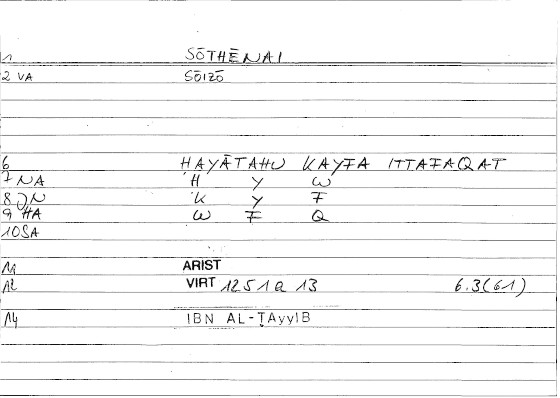 1 SŌTHĒNAI
2 VA SŌIZŌ
6 HAYĀTAHU KAYFA ITTAFAQAT
7 NA 'H Y W
8 ON 'K Y F
9 HA W F Q
10 SA
11 ARIST
12 VIRT 1251 a 13 6.3(61)
14 IBN AL-ṬAyyIB